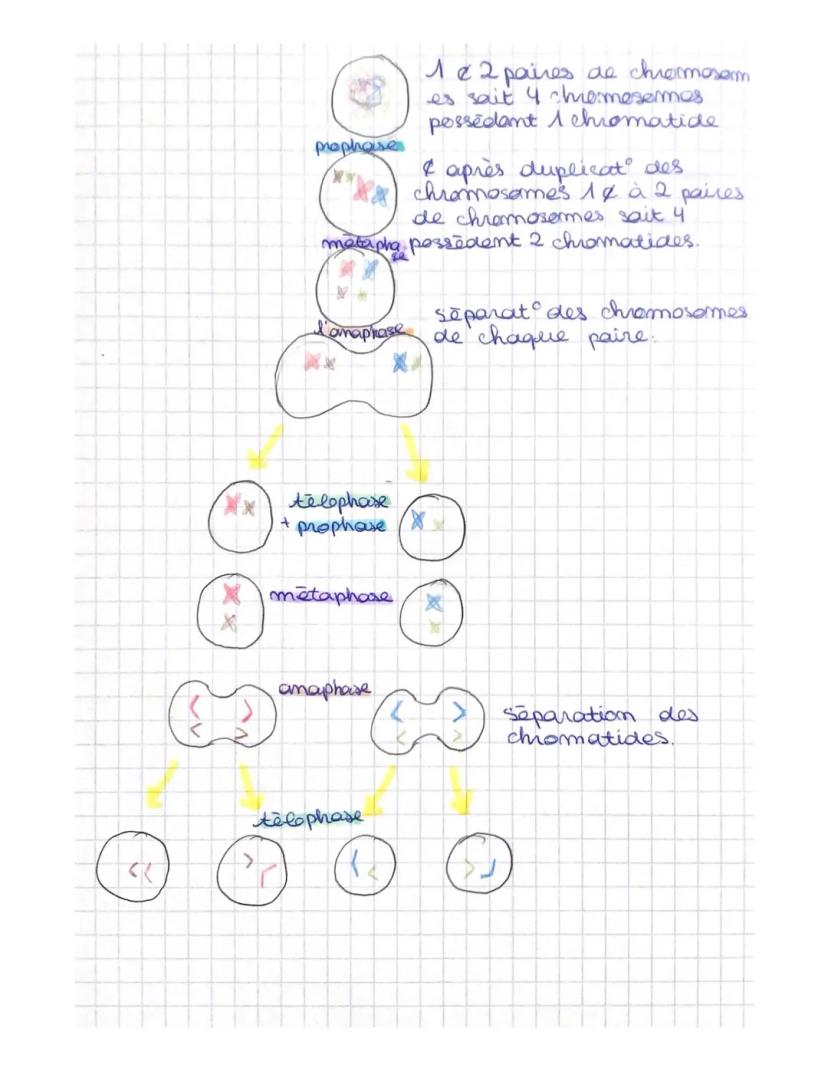 1 ¢ 2 paires de chromosom
es sait 4 chromosomes
possédant 1 chromatide
prophase
¢ après duplicat° des
chromosomes 1 ¢ à 2 paires
de chromosomes sait 4
possèdent 2 chromatides.
métapha
se
l'anaphase
séparat° des chromosomes
de chaque paire.
télophase
+ prophase
métaphase
anaphase
séparation des
chromatides.
télophase